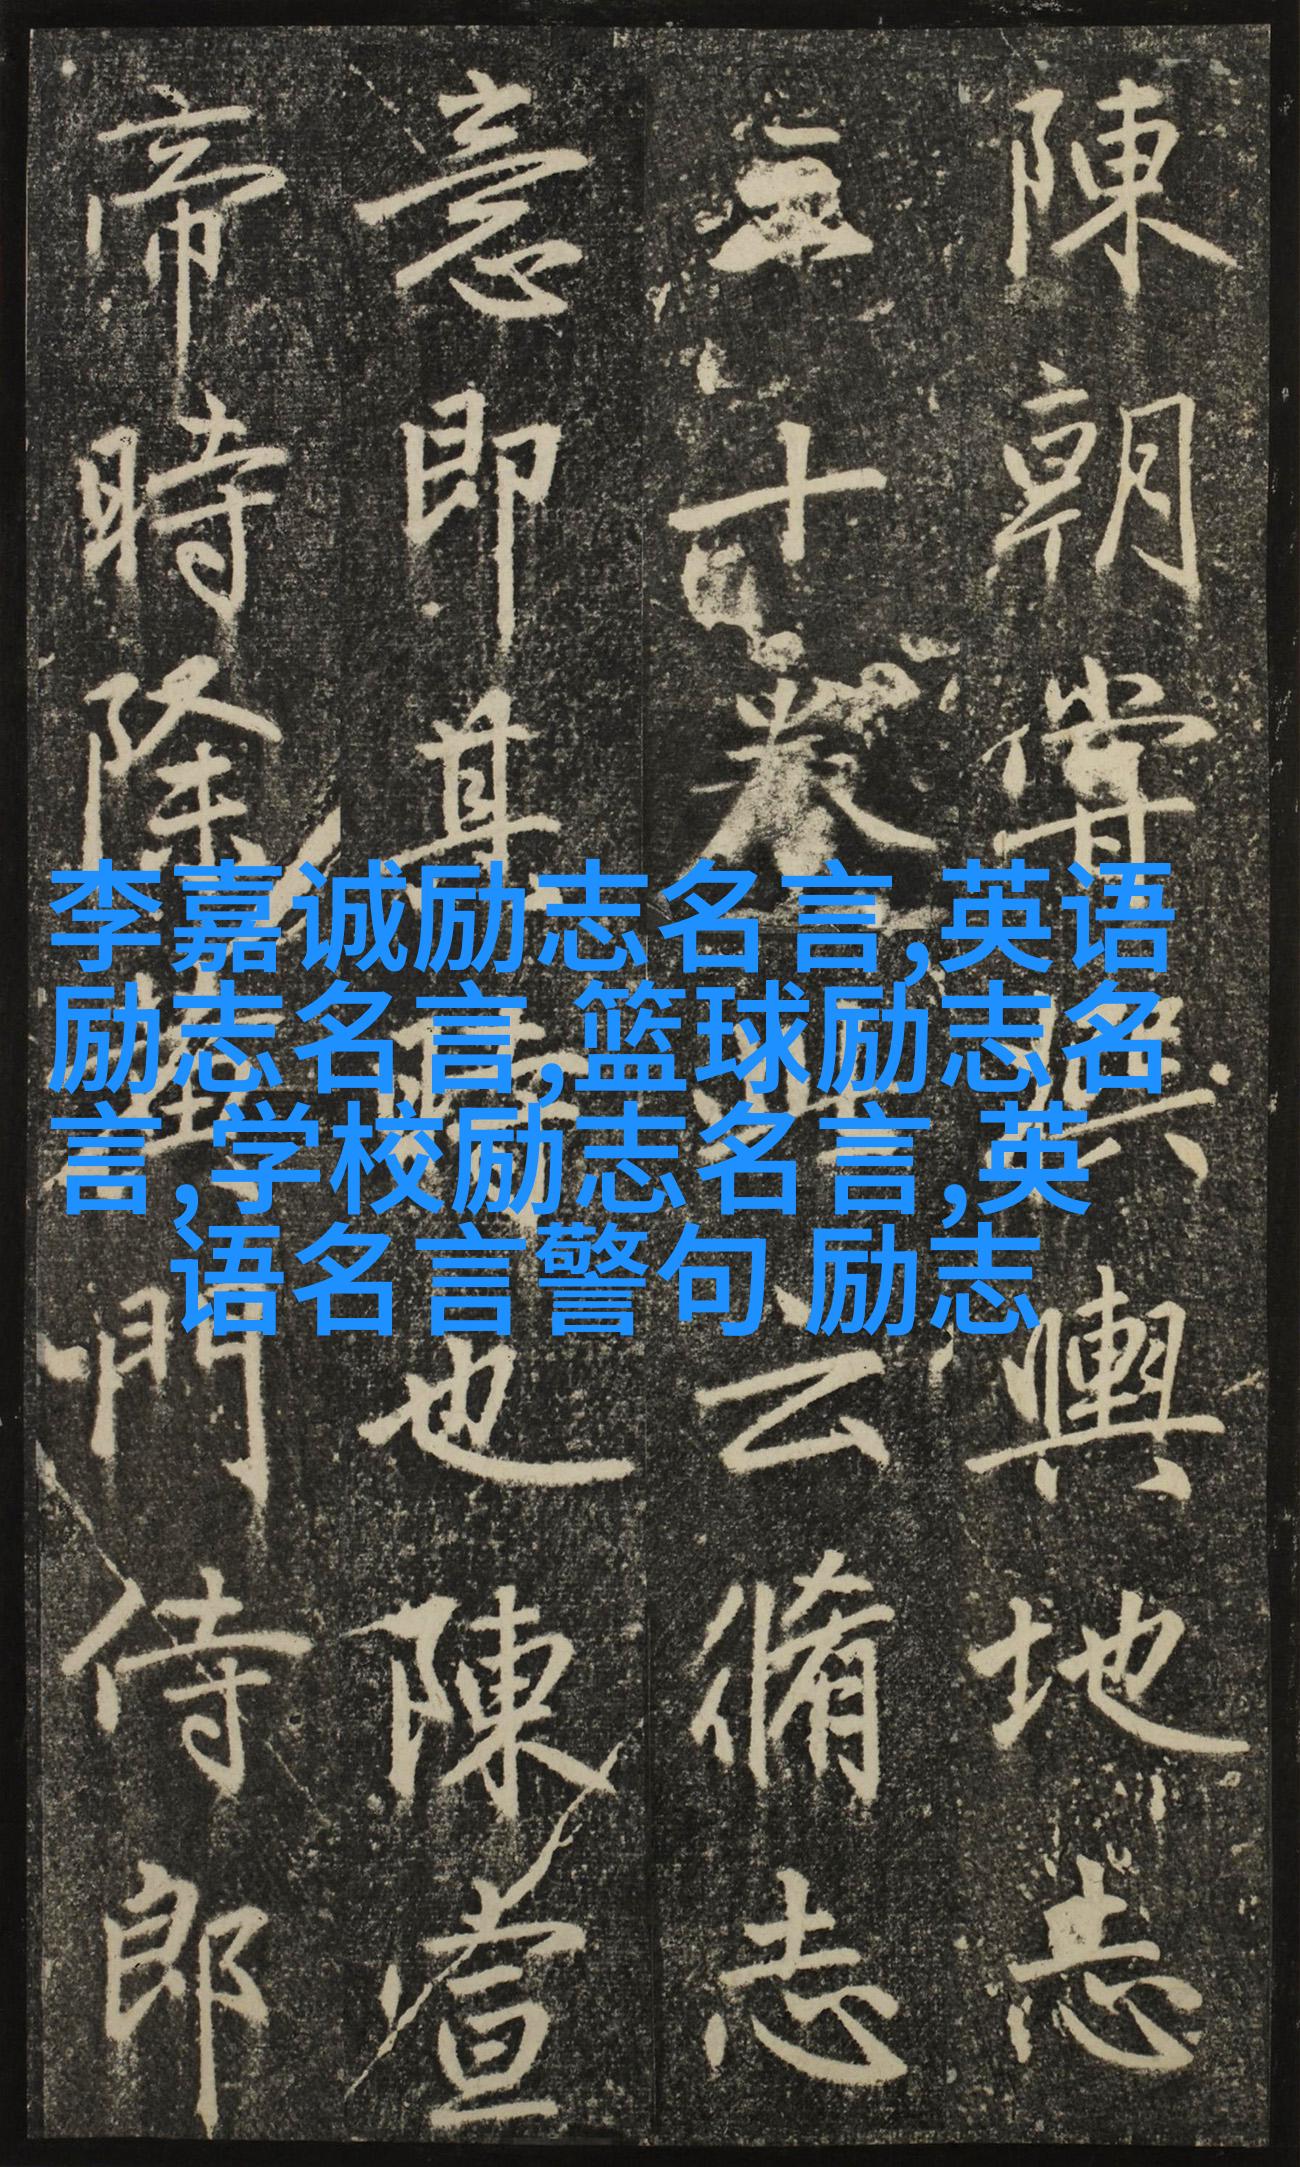 李嘉诚励志名言,英语
励志名言,篮球励志名
言,学校励志名言,英
语名言警句 励志
陳朝嘗輿地志
三十卷云脩志
意即其也陳宣
帝時除門侍郎